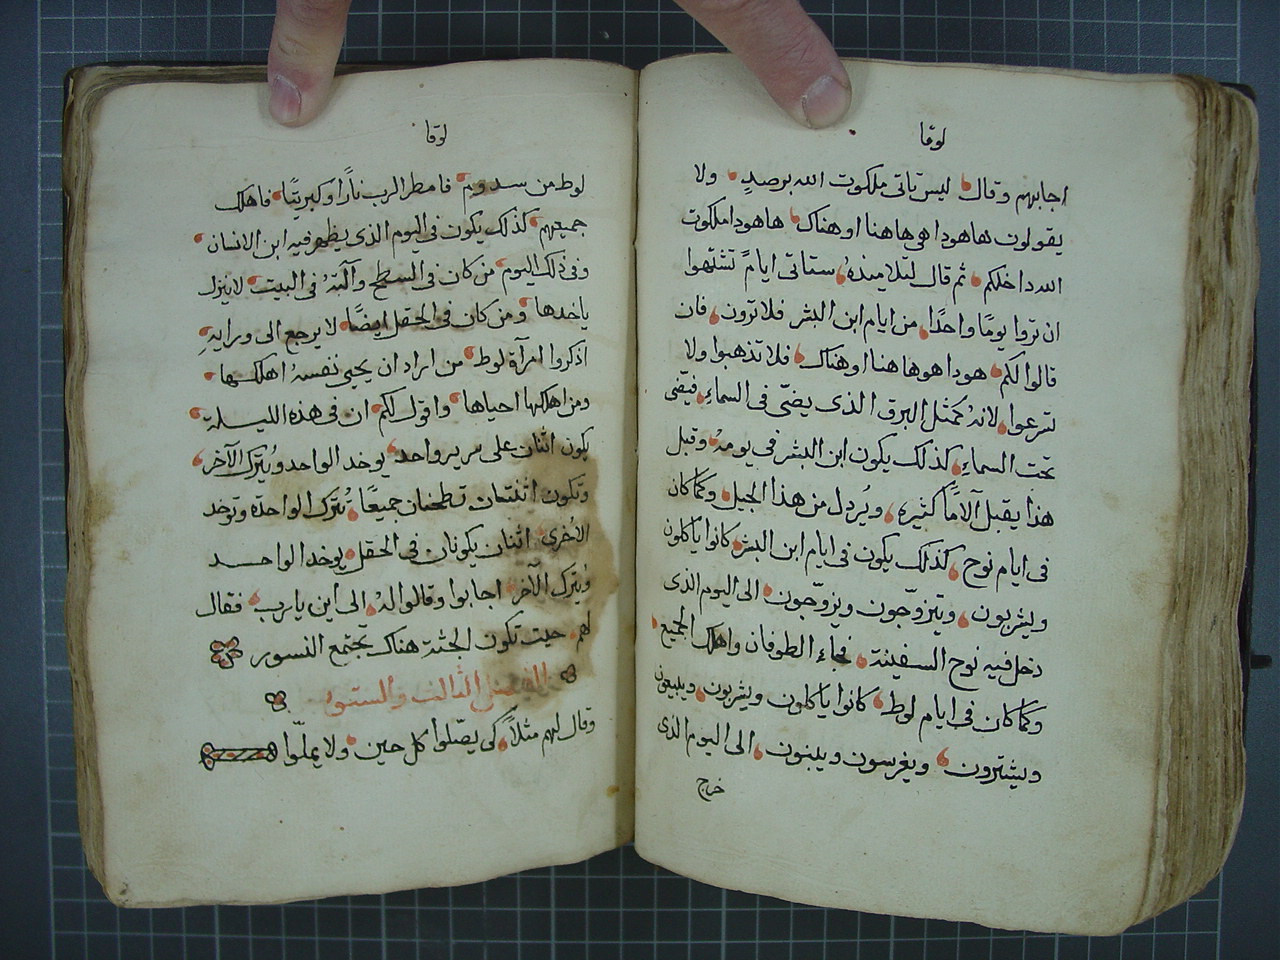 لوقا
اجابهم وقال ليس تاتى ملكوت الله برصدٍ ولا
يقولون هاهوداهى هاهنا او هناك هاهوداملكوت
الله داخلكم ثم قال لتلاميذهُ ستاتى ايامً تشتهوا
ان تروا يومًا واحدًا من ايام ابن البشر فلا ترون فان
قالوا لكم هوداهوهاهنا اوهناك فلا تذهبوا ولا
تسرعوا لانهُ كمثل البرق الذى يضى فى السماءِ فيضى
تحت السماءِ كذلك يكون ابن البشر فى يومهُ وقبل
هذا يقبل آلامًا كثيره ويُردل من هذا الجيل وكما كان
فى ايام نوح كذلك يكون فى ايام ابن البشر كانوا ياكلون
ويشربون ويتزوّجون ويزوّجون الى اليوم الذى
دخل فيه نوح السفينة فجاء الطوفان واهلك الجميع
وكما كان فى ايام لوط كانوا ياكلون ويشربون ويبيعون
ويشترون ويغرسون ويبنون الى اليوم الذى
خرج
لوقا
لوط من سدوم فامطر الرب نارًا وكبريتًا فاهلك
جميعهم كذلك يكون فى اليوم الذى يظهر فيه ابن الانسان
وفى ذلك اليوم من كان فى السطح وآلتهُ فى البيت لا ينزل
ياخدها ومن كان فى الحقل ايضًا لا يرجع الى ورايهِ
اذكروا امرآة لوط من اراد ان يحيى نفسهُ اهلكها
ومن اهلكها احياها واقول لكم ان فى هذه الليلة
يكون اثنان على سرير واحد يوخد الواحد ويُترك الآخر
وتكون اثنتان تطحنان جميعًا تُترك الواحدة وتوخد
الاُخرى اثنان يكونان فى الحقل يوخد الواحد
ويُترك الآخر اجابوا وقالوا لهُ الى اين يارب فقال
لهم حيت تكون الجثة هناك تجتمع النسور
الفصل الثالث والستون
وقال لهم مثلاً كى يصّلوا كل حين ولا يملّوا